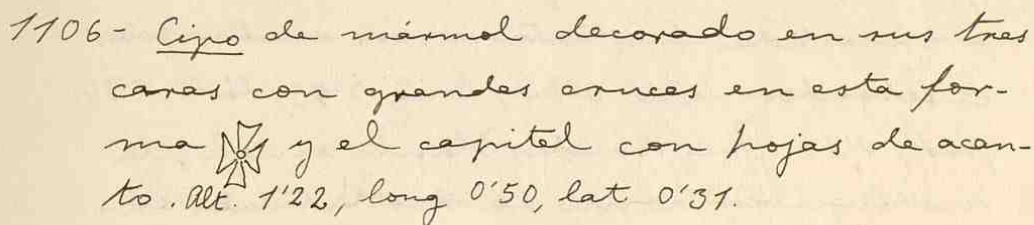 1106- Cipo de mármol decorado en sus tres
caras con grandes cruces en esta for-
ma ✠ y el capitel con hojas de acan-
to. Alt. 1'22, long 0'50, lat 0'31.